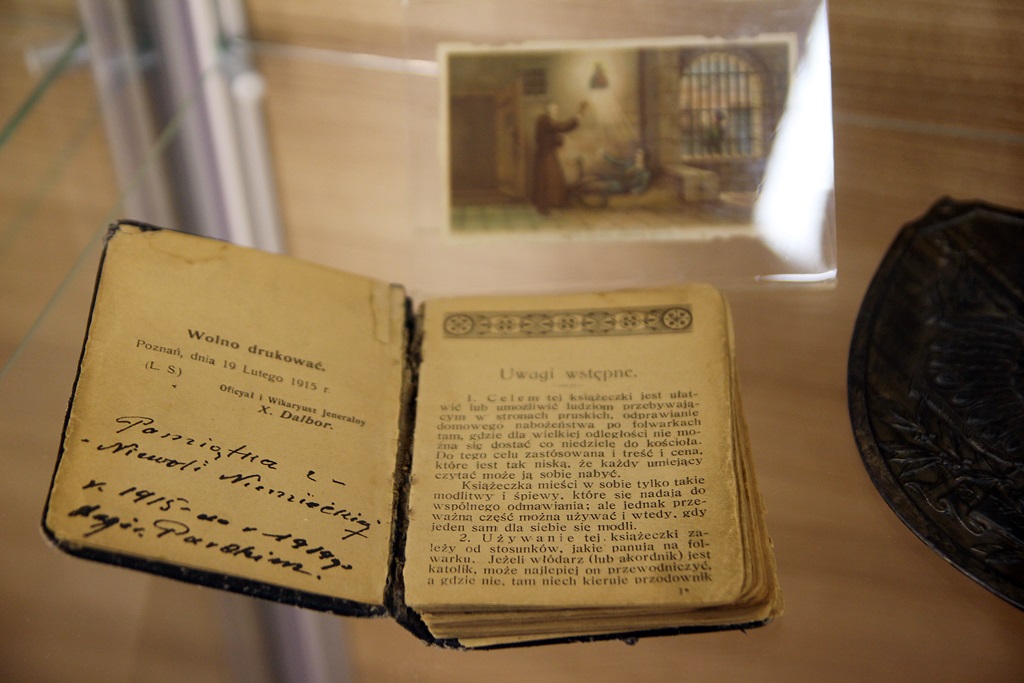 Wolno drukować.
Poznań, dnia 19 Lutego 1915 r.
(L. S.)
Oficyał i Wikaryusz jeneralny
X. Dalbor.
Pamiątka z -
- Niewoli Niemieckiej
r. 1915 - do r 1919go
Uwagi wstępne.
1. Celem tej książeczki jest ułat-
wić lub umożliwić ludziom przebywają-
cym w stronach pruskich, odprawianie
domowego nabożeństwa po folwarkach
tam, gdzie dla wielkiej odległości nie mo-
żna się dostać co niedzielę do kościoła.
Do tego celu zastósowana i treść i cena,
które jest tak niską, że każdy umiejący
czytać może ją sobie nabyć.
Książeczka mieści w sobie tylko takie
modlitwy i śpiewy, które się nadają do
wspólnego odmawiania; ale jednak prze-
ważną część można używać i wtedy, gdy
jeden sam dla siebie się modli.
2. Używanie tej książeczki za-
leży od stosunków, jakie panują na fol-
warku. Jeżeli włódarz (lub akordnik) jest
katolik, może najlepiej on przewodniczyć,
a gdzie nie, tam niech kieruje przodownik
1*